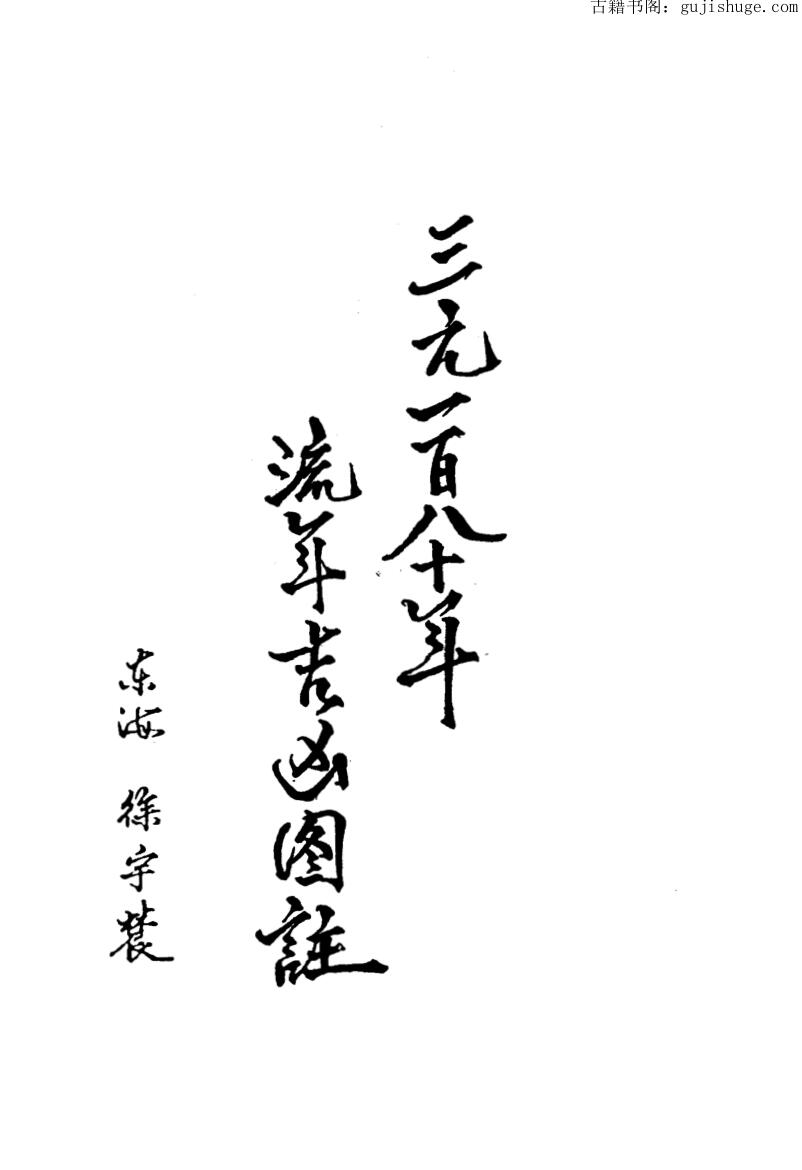 古籍书阁：gujishuge.com
三元一百八十年
流年吉凶图註
东海 徐宇辳